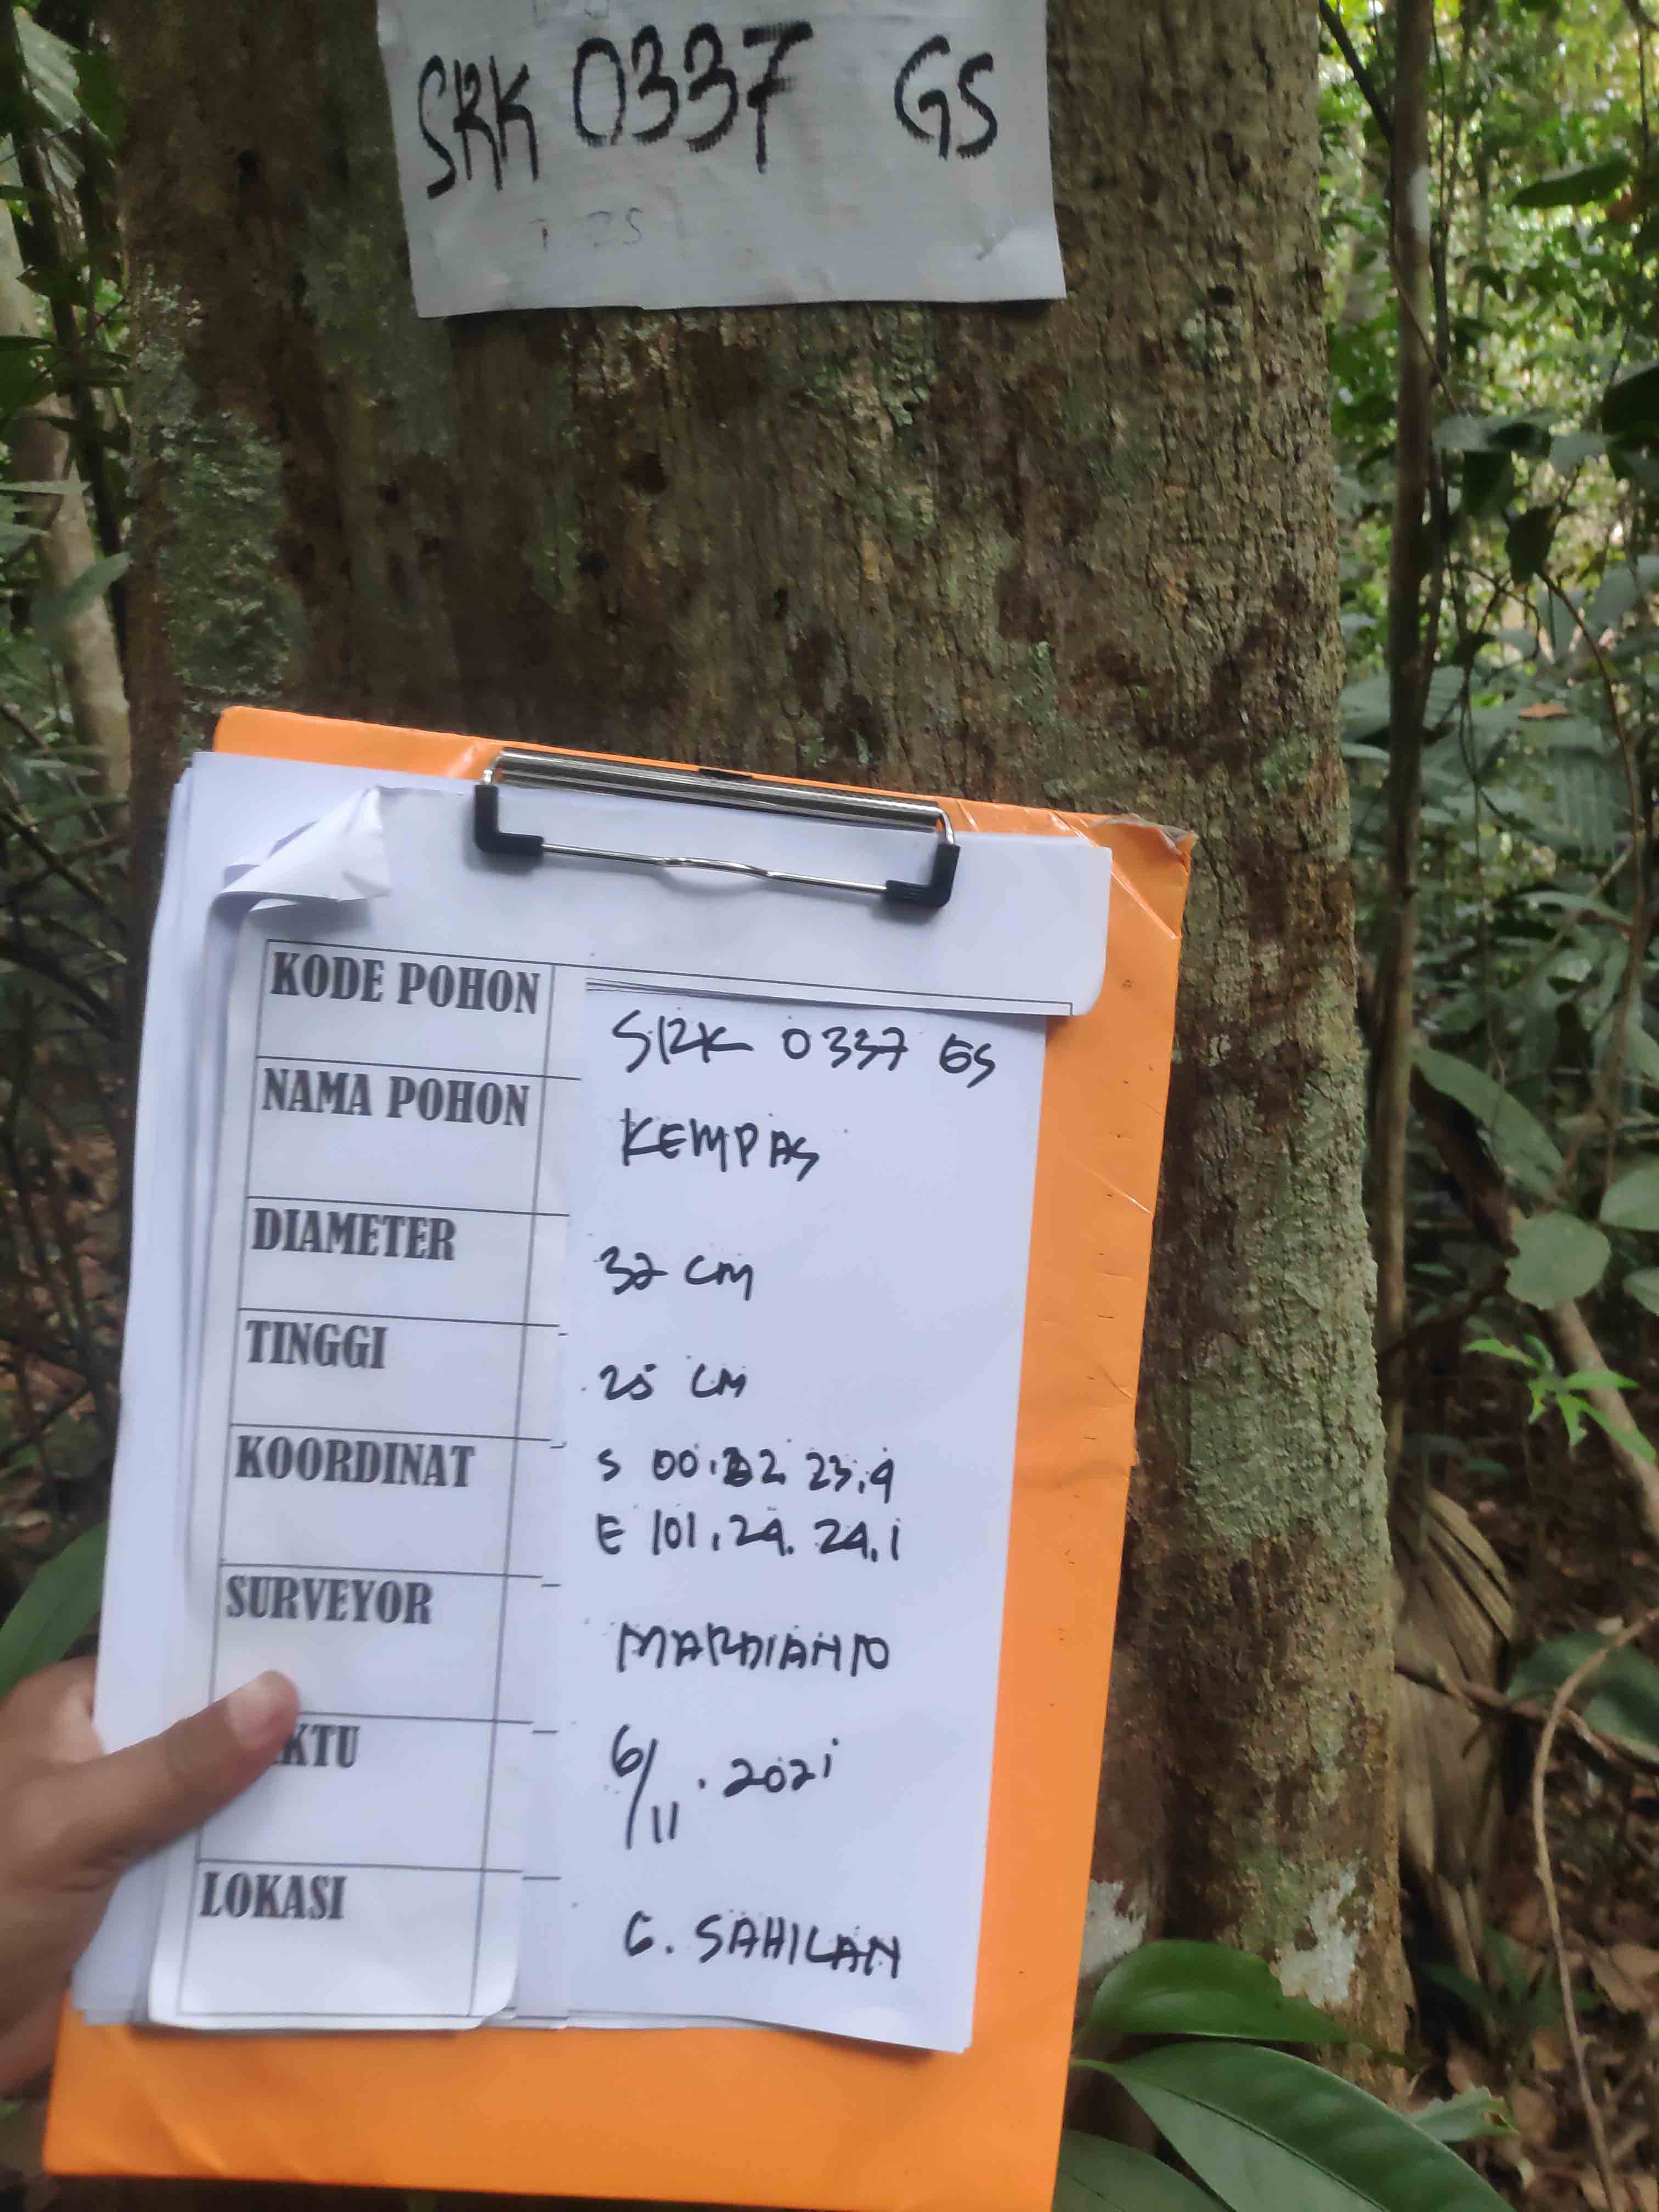 SRK 0337 GS
KODE POHON SRK 0337 GS
NAMA POHON KEMPAS
DIAMETER 32 CM
TINGGI 25 CM
KOORDINAT S 00. 23.9
E 101.24. 24.1
SURVEYOR MARDIANTO
KTU 6/11.2021
LOKASI G. SAHILAN